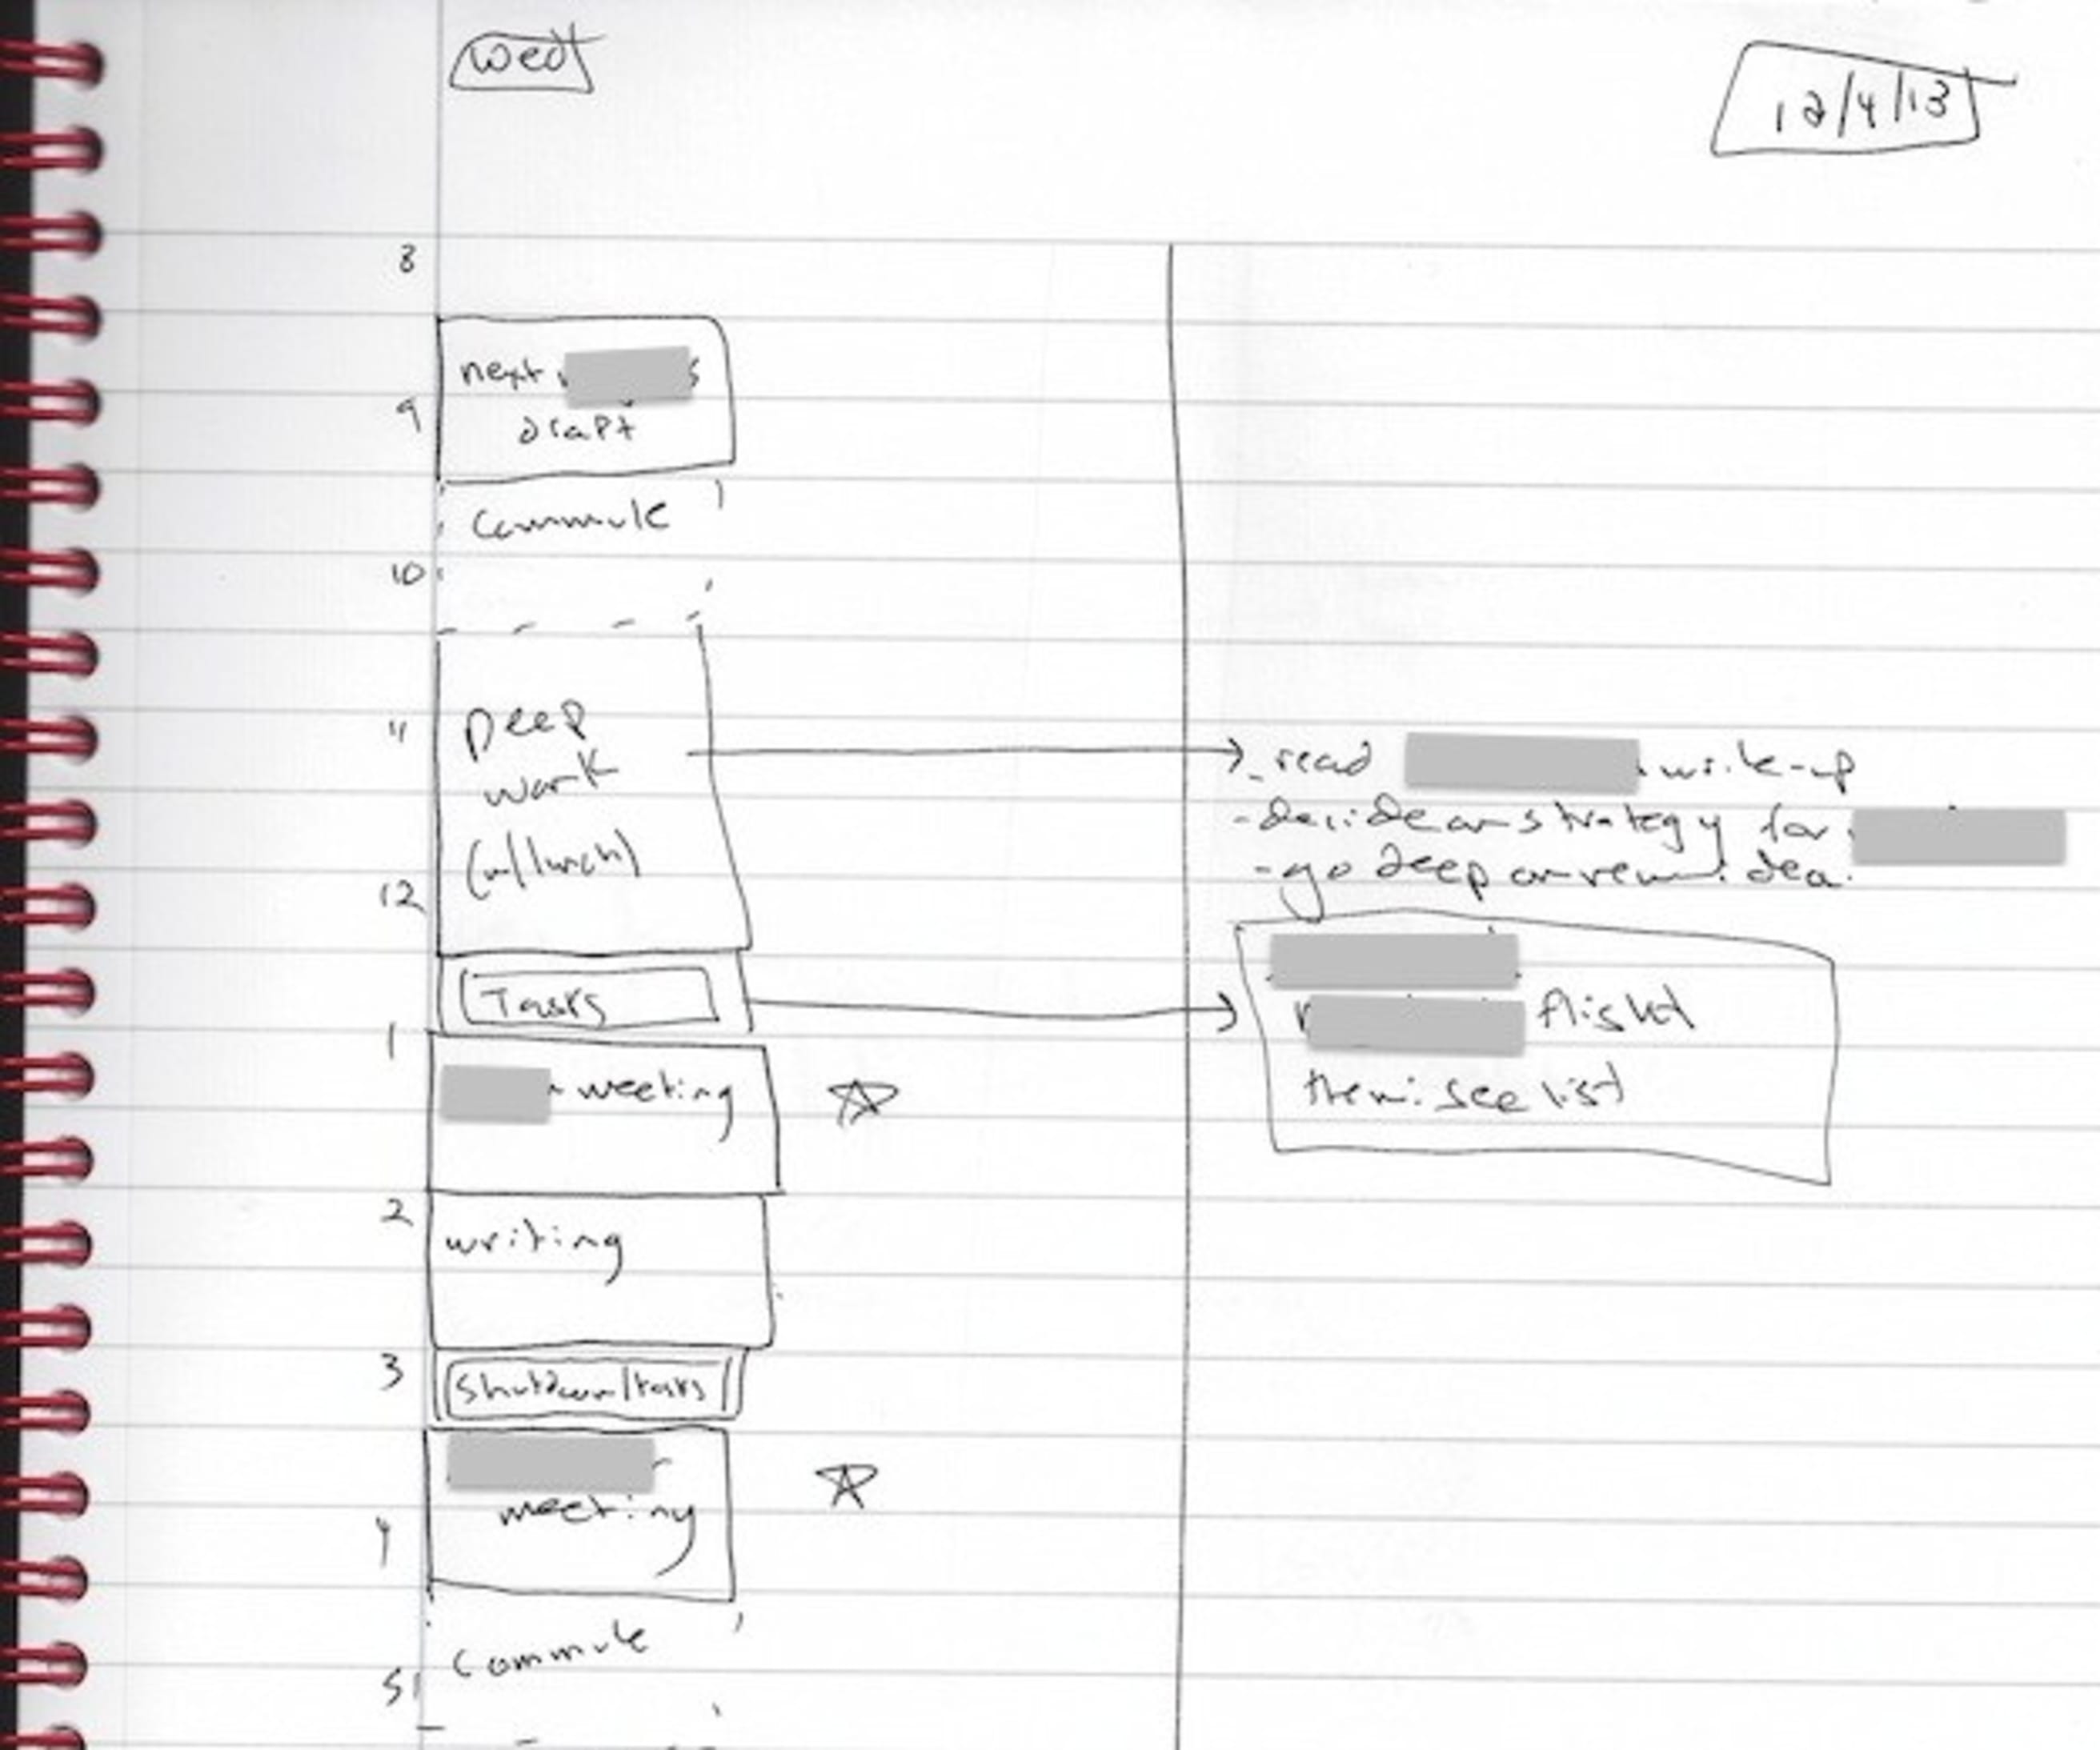 wed
12/4/13
8
next
9
draft
commute
10
11
Deep
work
(w/lunch)
- read write-up
- decide on strategy for
- go deep on new idea.
12
Tasks
flight
then: see list
1
meeting
2
writing
3
shutdown/tasks
meeting
4
commute
5